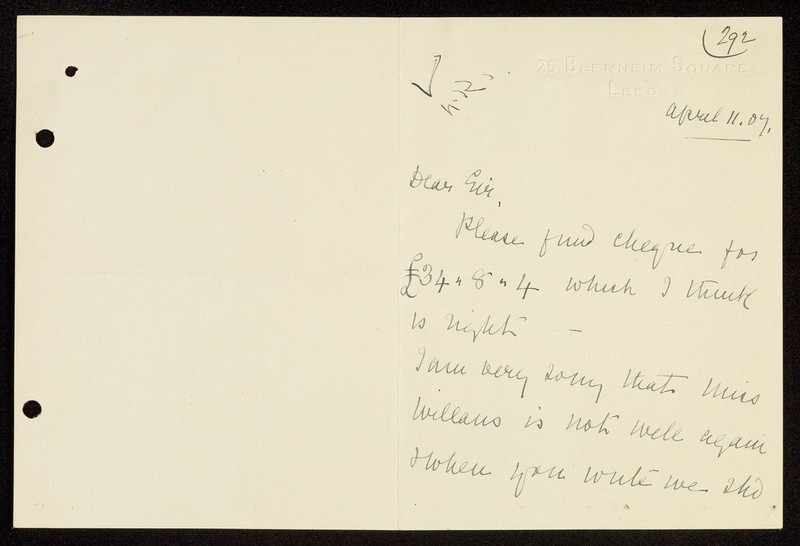 292
25 Blenheim Square,
Leeds.
April 11. 07.
Dear Sir,
Please find cheque for
£34 " 8 " 4 which I think
is right –
I am very sorry that Miss
Willans is not well again
& when you write we shd